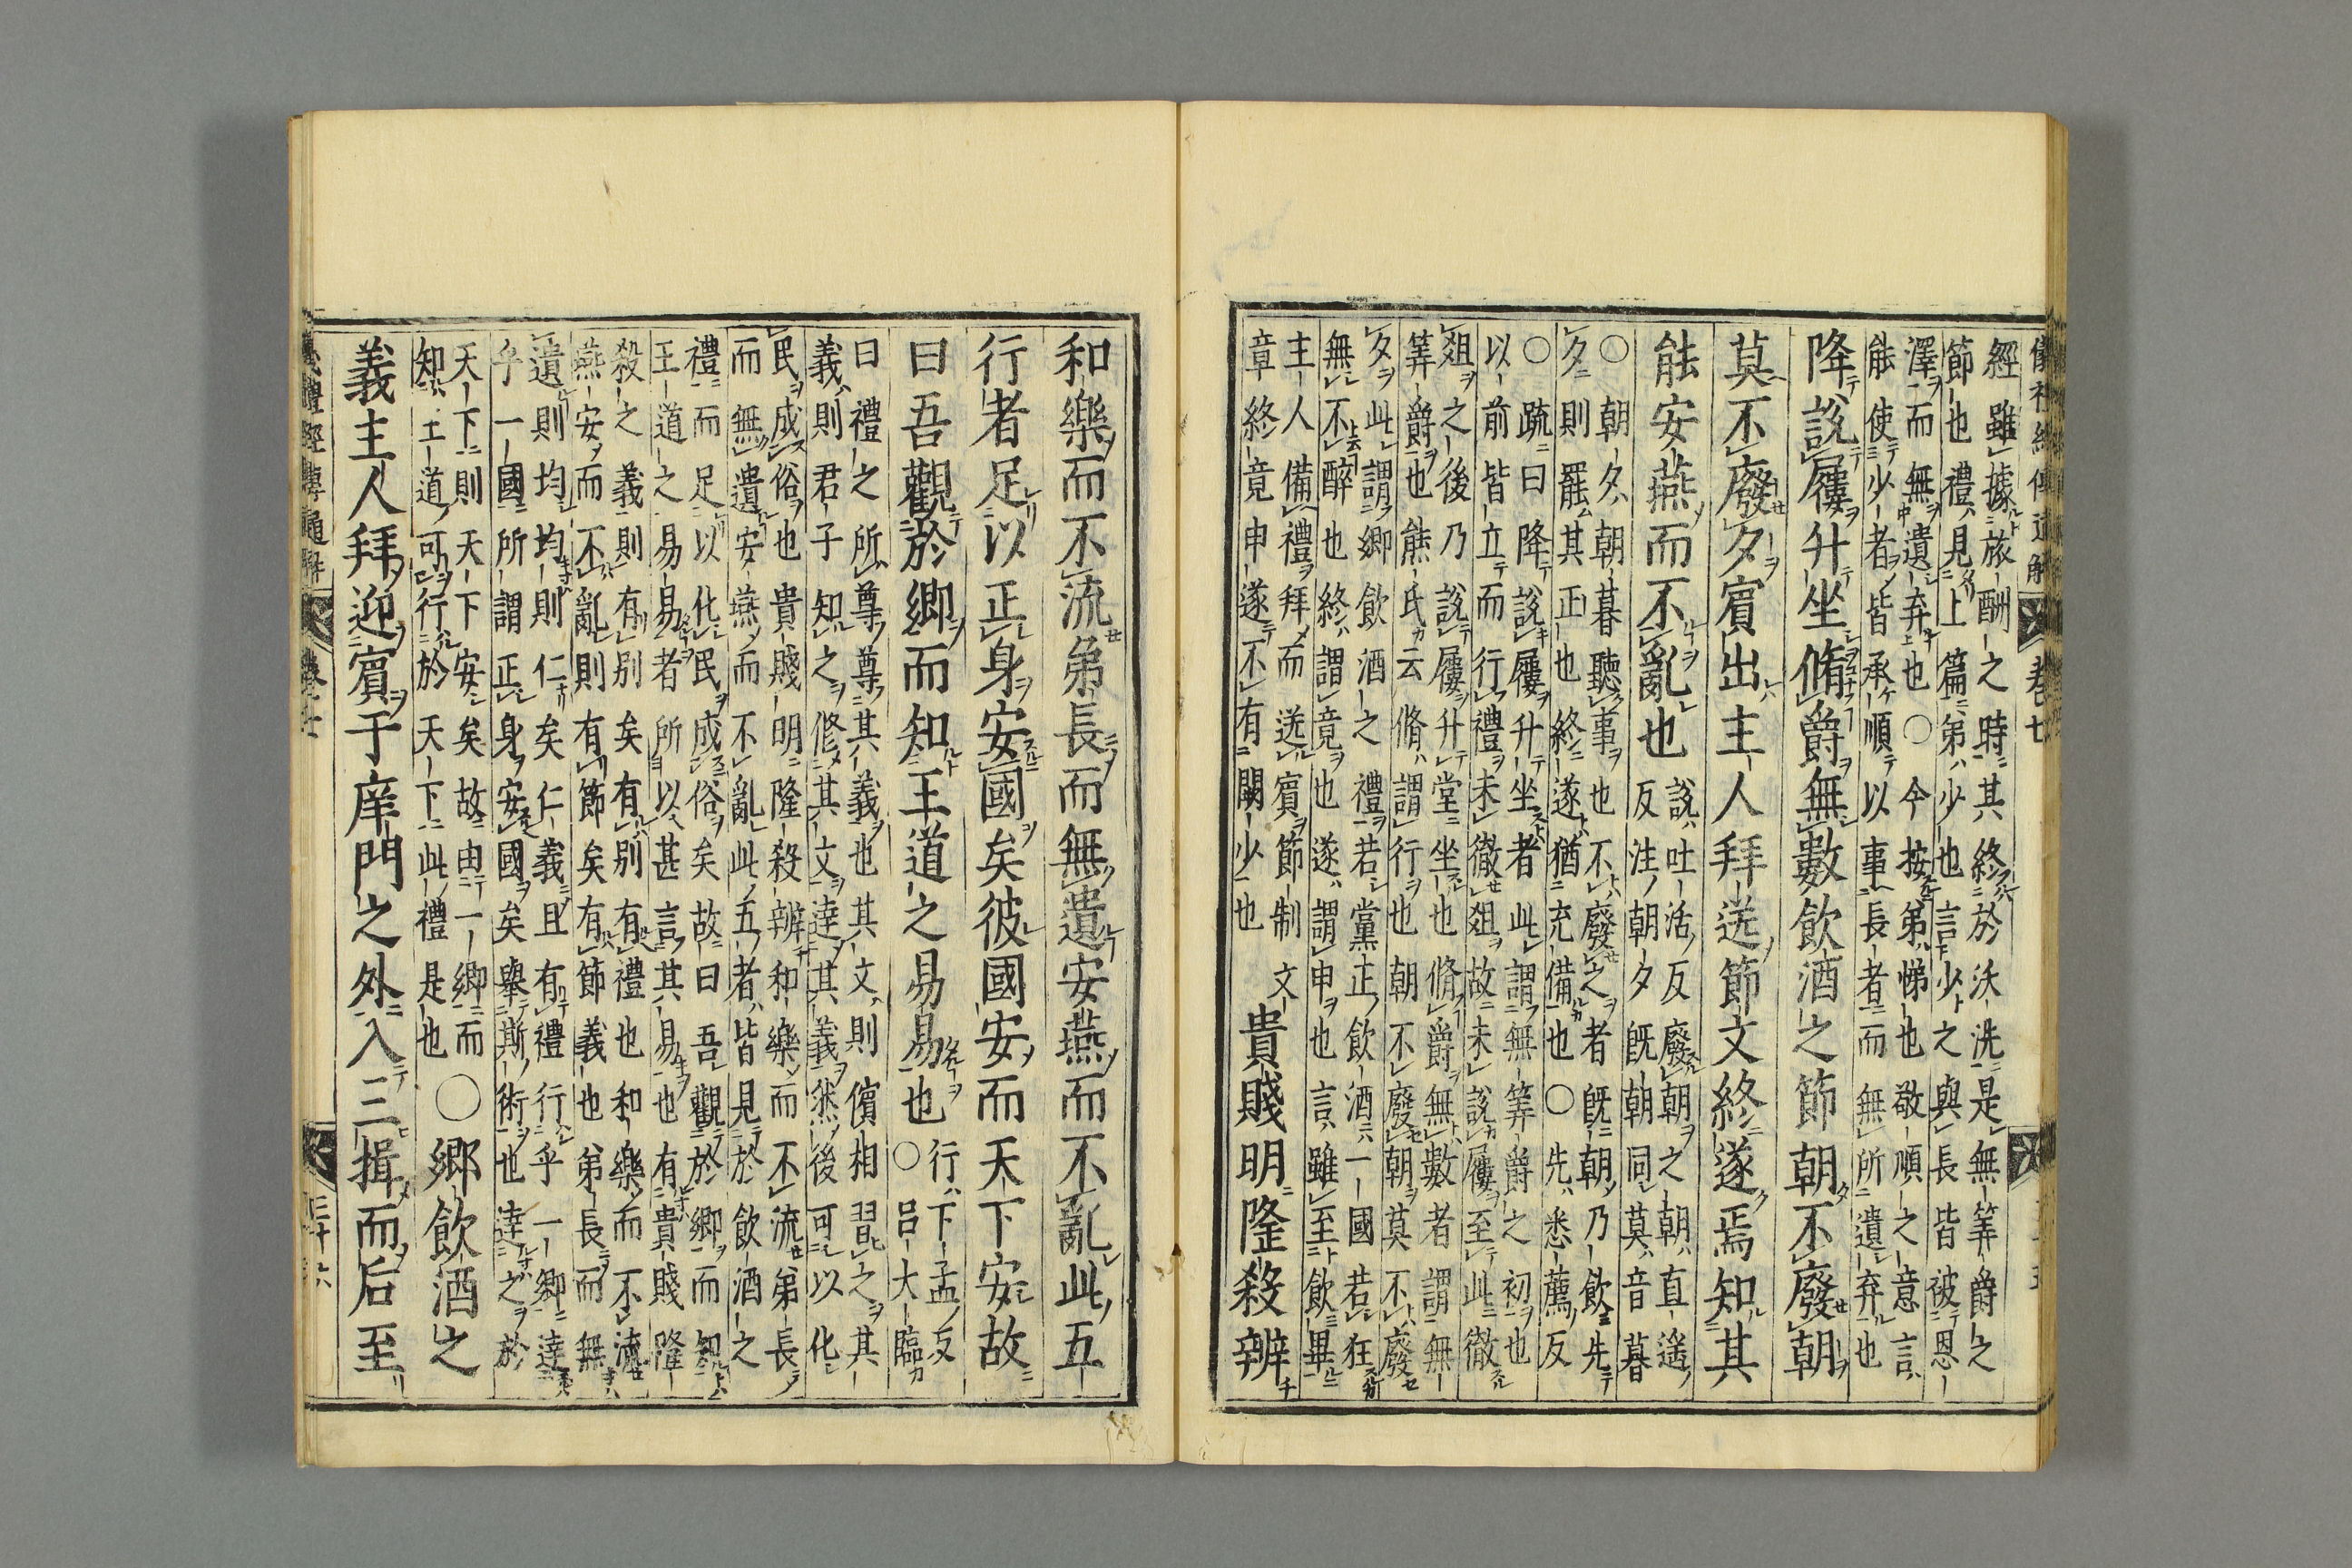 儀礼經傳通解 卷七
經雖據旅酬之時其終於沃洗是無筭爵之
節也禮見上篇弟少也言少之與長皆被恩
澤而無遺弃也〇今按弟悌也敬順之意言
能使少者皆承順以事長者而無所遺弃也
降說屨升坐脩爵無數飲酒之節朝不廢朝
莫不廢夕賓出主人拜送節文終遂焉知其
能安燕而不亂也
說吐活反廢朝之朝直遙
反注朝夕既朝同莫音暮
〇朝夕朝暮聽事也不廢之者既朝乃飲先
夕則罷其正也終遂猶充備也〇先悉薦反
〇疏曰降說屨升坐者此謂無筭爵之初也
以前皆立而行禮未徹爼故未說屨至此徹
爼之後乃說屨升堂坐也脩爵無數者謂無
筭爵也熊氏云脩謂行也朝不廢朝莫不廢
夕此謂鄉飲酒之禮若黨正飲酒一國若狂
無不醉也終謂竟也遂謂申也言雖至飲畢
主人備禮拜而送賓節制文
章終竟申遂不有闕少也
貴賤明隆殺辨
和樂而不流弟長而無遺安燕而不亂此五
行者足以正身安國矣彼國安而天下安故
曰吾觀於鄉而知王道之易易也
行下孟反
〇呂大臨
曰禮之所尊尊其義也其文則儐相習之其
義則君子知之修其文達其義然後可以化
民成俗也貴賤明隆殺辨和樂而不流弟長
而無遺安燕而不亂此五者皆見於飲酒之
禮而足以化民成俗矣故曰吾觀於鄉而知
王道之易易者所以甚言其易也有貴賤隆
殺之義則有別矣有別有禮也和樂而不流
燕安而不亂則有節矣有節義也弟長而無
遺則均均則仁矣仁義且有禮行乎一鄉達
乎一國所謂正身安國矣舉斯術也達之於
天下則天下安矣故由一鄉而
知王道可行於天下此禮是也
〇鄉飲酒之
義主人拜迎賓于庠門之外入三揖而后至
儀禮經傳通解 卷七 三十六